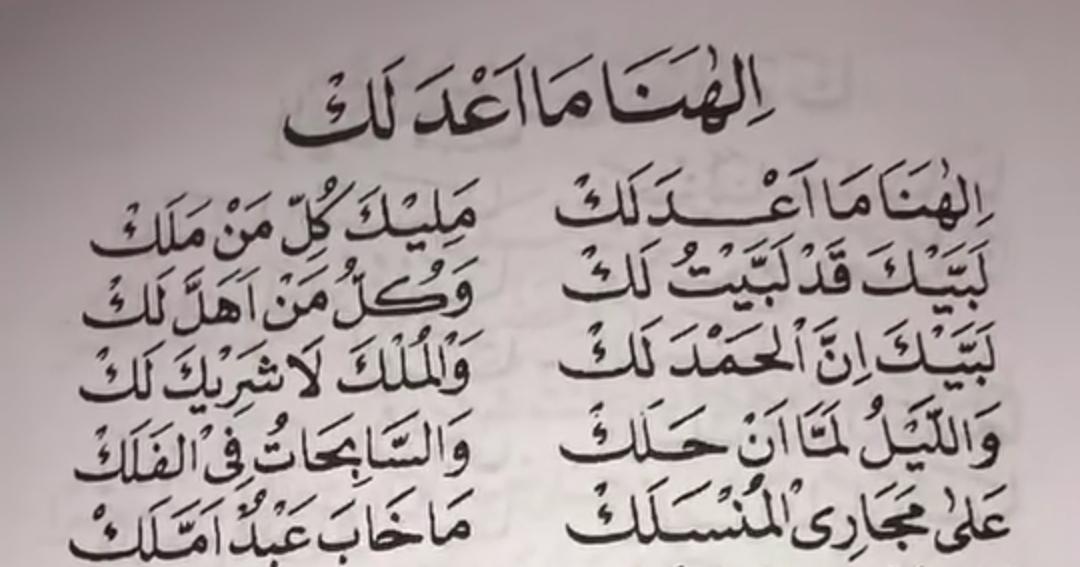 اِلٰهَنَا مَا اَعْدَ لَكْ
اِلٰهَنَا مَا اَعْـــدَلَكْ مَلِيْكَ كُلِّ مَنْ مَلَكْ
لَبَّيْكَ قَدْ لَبَّيْتُ لَكْ وَكُلُّ مَنْ اَهَلَّ لَكْ
لَبَّيْكَ اِنَّ الْحَمْدَ لَكْ وَالْمُلْكَ لَا شَرِيْكَ لَكْ
وَاللَّيْلُ لَمَّا اَنْ حَـلَكْ وَالسَّابِحَاتُ فِى الْفَلَكْ
عَلٰى مَجَارِى الْمُنْسَلَكْ مَا خَابَ عَبْدٌ اَمَّلَكْ